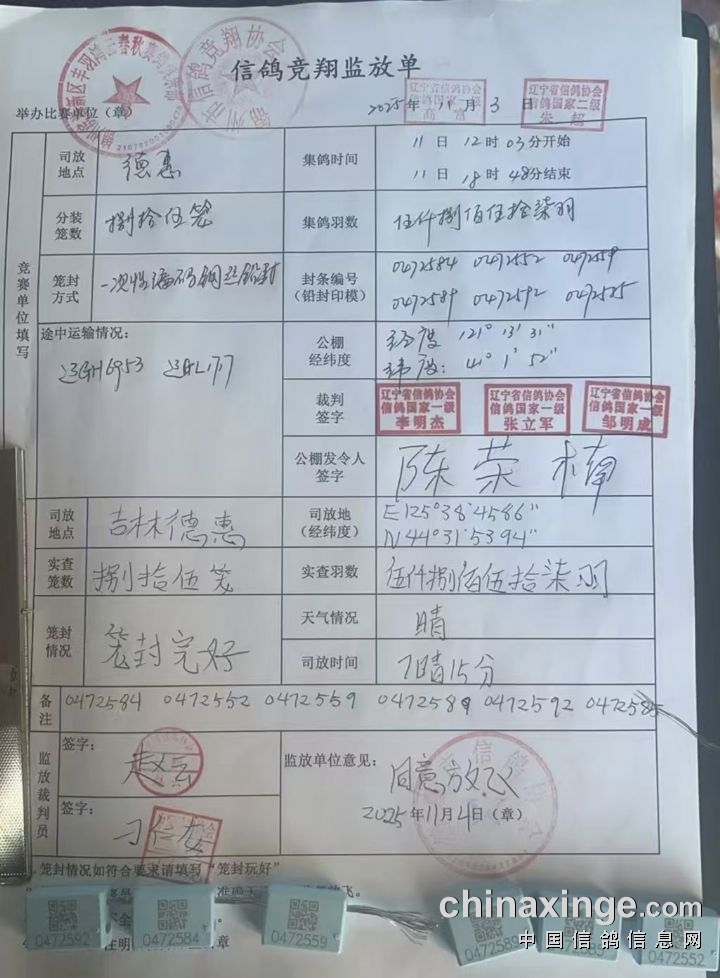 信鸽竞翔监放单
举办比赛单位（章）
2025年 11月 3日
辽宁省信鸽协会
信鸽国家一级
高富
辽宁省信鸽协会
信鸽国家二级
朱超
竞赛单位填写
司放地点
德惠
集鸽时间
11日12时03分开始
11日18时48分结束
分装笼数
捌拾伍笼
集鸽羽数
伍仟捌佰伍拾柒羽
笼封方式
一次性编码钢丝铅封
封条编号（铅封印模）
0472584 0472552 0472559
0472589 0472592 0472585
途中运输情况：
辽GH6953
公棚经纬度
经度 121° 13' 31"
纬度: 41° 1' 52"
裁判签字
辽宁省信鸽协会
信鸽国家一级
李明杰
辽宁省信鸽协会
信鸽国家一级
张立军
辽宁省信鸽协会
信鸽国家一级
邹明成
公棚发令人签字
陈荣楠
司放地点
吉林德惠
司放地（经纬度）
E125°38'4586"
N44°31'5394"
实查笼数
捌拾伍笼
实查羽数
伍仟捌佰伍拾柒羽
笼封情况
笼封完好
天气情况
晴
司放时间
7时15分
备注
0472584 0472552 0472559 0472589 0472592 0472585
监放裁判员
签字：
赵云
签字：
监放单位意见：
同意放飞
2025年11月4日（章）
笼封情况如符合要求请填写“笼封玩好”
0472592
0472584
0472559
0472589
0472552
chinaxinge.com
中国信鸽信息网